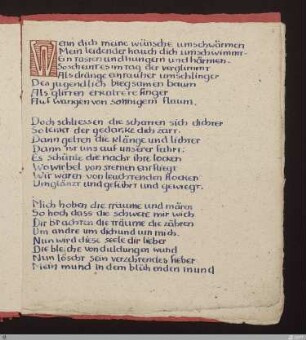 Wenn dich meine wünsche umschwärmen
Mein leidender hauch dich umschwimmt
Ein tasten und hungern und härmen:
So scheint es im tag der verglimmt
Als dränge ein rauher umschlinger
Den jugendlich biegsamen baum
Als glitten erkaltete finger
Auf wangen von sonnigem flaum.
Doch schliessen die schatten sich dichter
So lenkt der gedanke dich zart.
Dann gelten die klänge und lichter
Dann ist uns auf unserer fahrt:
Es schüttle die nacht ihre locken
Wo wirbel von sternen entfliegt
Wir wären von leuchtenden flocken
Umglänzt und geführt und gewiegt.
Mich hoben die träume und mären
So hoch dass die schwere mir wich
Dir brachten die träume die zähren
Um andre um dich und um mich.
Nun wird diese seele dir lieber
Die bleiche von duldungen wund
Nun löscht sein verzehrendes fieber
Mein mund in dem blühenden mund